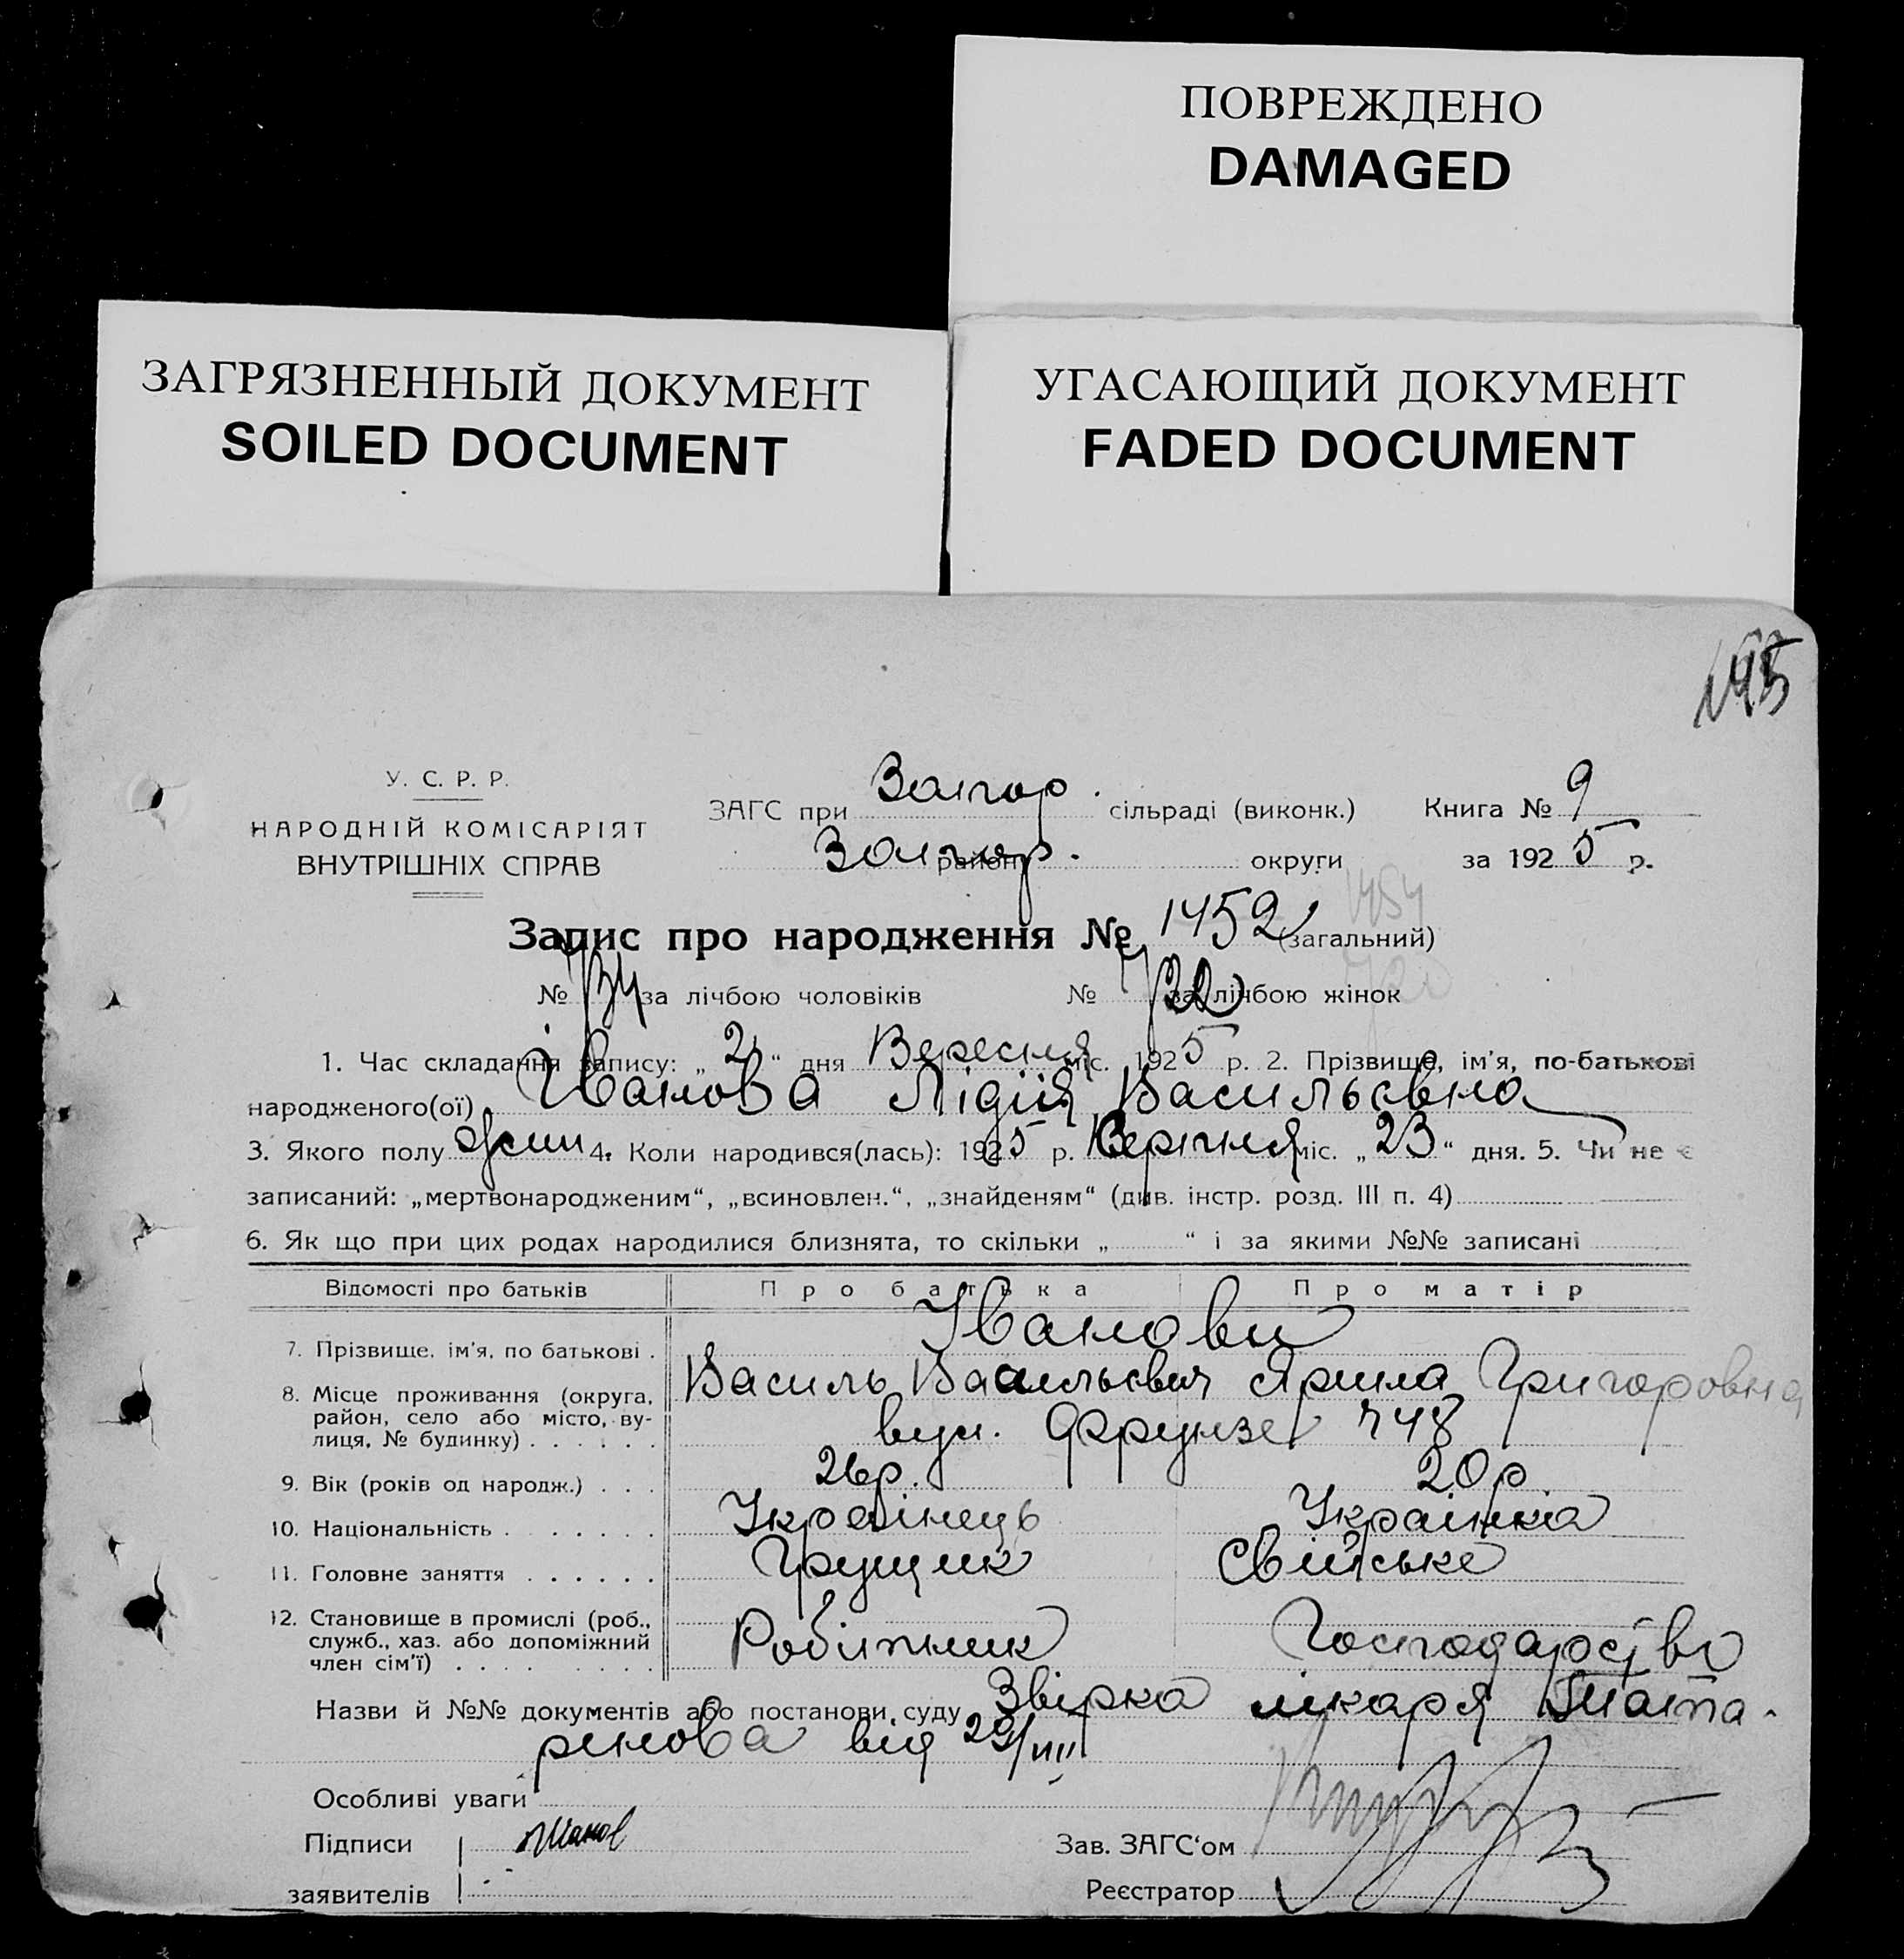 ПОВРЕЖДЕНО
DAMAGED
ЗАГРЯЗНЕННЫЙ ДОКУМЕНТ
SOILED DOCUMENT
УГАСАЮЩИЙ ДОКУМЕНТ
FADED DOCUMENT
145
У. С. Р. Р.
НАРОДНІЙ КОМІСАРІЯТ
ВНУТРІШНІХ СПРАВ
ЗАГС при сільраді (виконк.) Книга № 9
район округи за 1925 р.
Запис про народження № 1452 (загальний)
№ за лічбою чоловіків № за лічбою жінок
1. Час складання запису: „ 2 “ дня Вересня міс. 1925 р. 2. Прізвище, ім'я, по-батькові
народженого(ої) Іванова Лідія Васильєвна
3. Якого полу жін 4. Коли народився(лась): 1925 р. міс. „ 23 “ дня. 5. Чи не є
записаний: „мертвонародженим“, „всиновлен.“, „знайденям“ (див. інстр. розд. III п. 4)
6. Як що при цих родах народилися близнята, то скільки „ “ і за якими №№ записані
Відомості про батьків Про батька Про матір
7. Прізвище, ім'я, по батькові . Іванови
8. Місце проживання (округа, Василь Васильевич Ярина Григоровна
район, село або місто, ву-
лиця, № будинку) . . . . . . вул. Фрунзе 748
9. Вік (років од народж.) . . . 26р. 20р
10. Національність . . . . . . . Українець Українка
11. Головне заняття . . . . . . Грущик Свійське
12. Становище в промислі (роб.,
служб., хаз. або допоміжний Робітник Господарство
член сім'ї) . . . . . . . . .
Назви й №№ документів або постанови суду Звірка лікаря Тата-
рінова від 29/VIII
Особливі уваги
Підписи
Зав. ЗАГС'ом
заявителів
Реєстратор